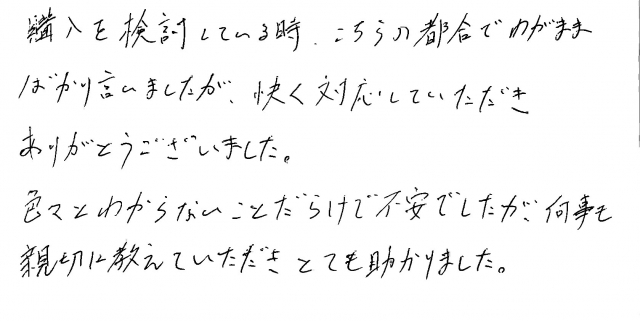 購入を検討している時、こちらの都合でわがまま
ばかり言いましたが、快く対応していただき
ありがとうございました。
色々とわからないことだらけで不安でしたが、何事も
親切に教えていただきとても助かりました。